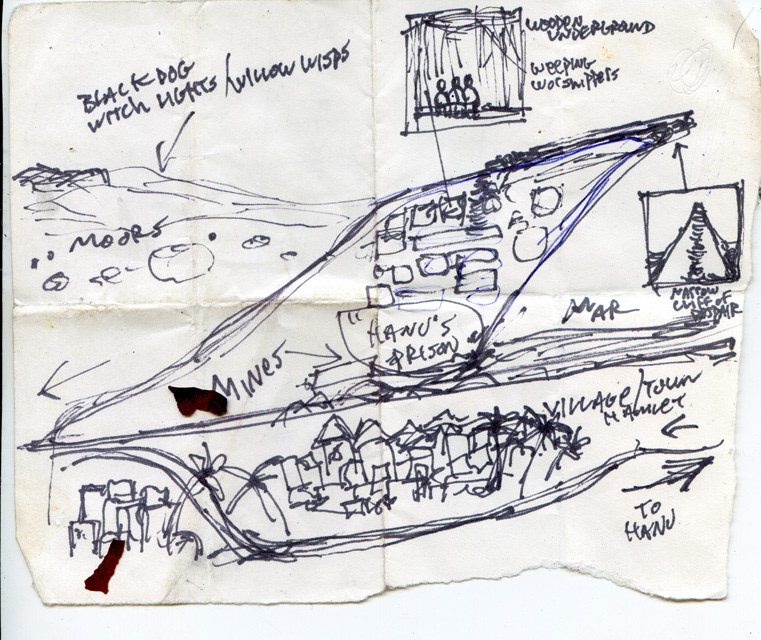 WOODEN
UNDERGROUND
WEEPING
WORSHIPPERS
BLACK DOG
WITCH LIGHTS / WILLOW WISPS
MOORS
NARROW
CLIFF OF
DESPAIR
MAR
"HANU'S
PRISON
MINES
VILLAGE/TOWN
HAMLET
TO
HANU